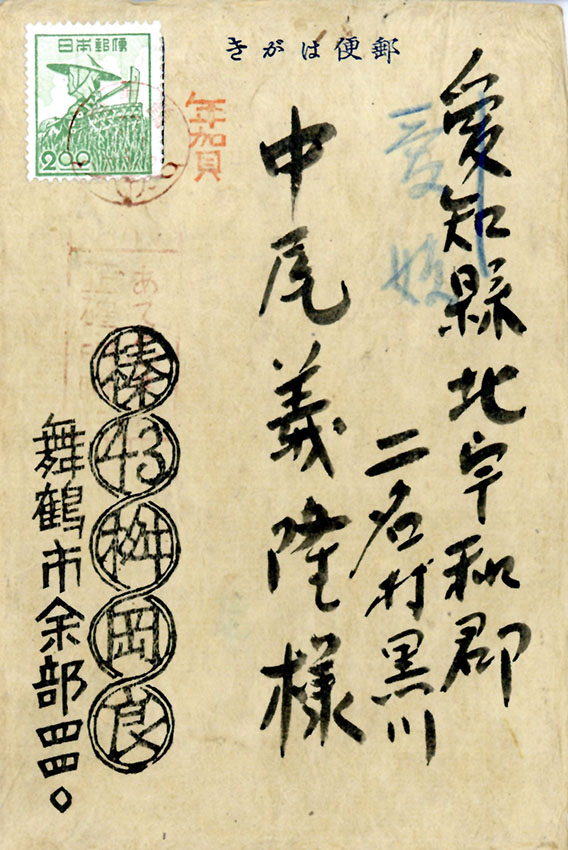 郵便はがき
日本郵便
2.00
年賀
愛知縣北宇和郡
愛媛
二名村黒川
中尾義隆様
榛43桝岡良
舞鶴市余部四四〇